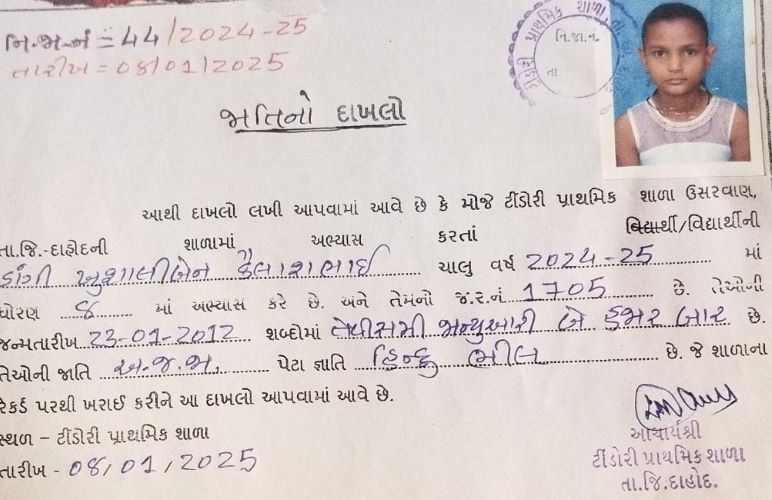 નિ.જા.નં = 44/2024-25
તારીખ = 08/01/2025
ટીંડોરી પ્રાથમિક શાળા, તા.
નિ.જા.નં.
તા
જાતિનો દાખલો
આથી દાખલો લખી આપવામાં આવે છે કે મોજે ટીંડોરી પ્રાથમિક શાળા ઉસરવાણ,
તા.જિ.-દાહોદની શાળામાં અભ્યાસ કરતાં વિદ્યાર્થી/વિદ્યાર્થીની
ડાંગી ખુશાલીબેન કૈલાશભાઈ ચાલુ વર્ષ 2024-25 માં
ધોરણ ૪ માં અભ્યાસ કરે છે. અને તેમનો જં.ર.નં. 1705 છે. તેઓની
જન્મતારીખ 23-01-2012 શબ્દોમાં તેવીસમી જાન્યુઆરી બે હજાર બાર છે.
તેઓની જાતિ અ.જ.જા. પેટા જ્ઞાતિ હિન્દુ ભીલ છે. જે શાળાના
રેકર્ડ પરથી ખરાઈ કરીને આ દાખલો આપવામાં આવે છે.
સ્થળ – ટીંડોરી પ્રાથમિક શાળા
તારીખ - 08/01/2025
આચાર્યશ્રી
ટીંડોરી પ્રાથમિક શાળા
તા.જિ.દાહોદ.